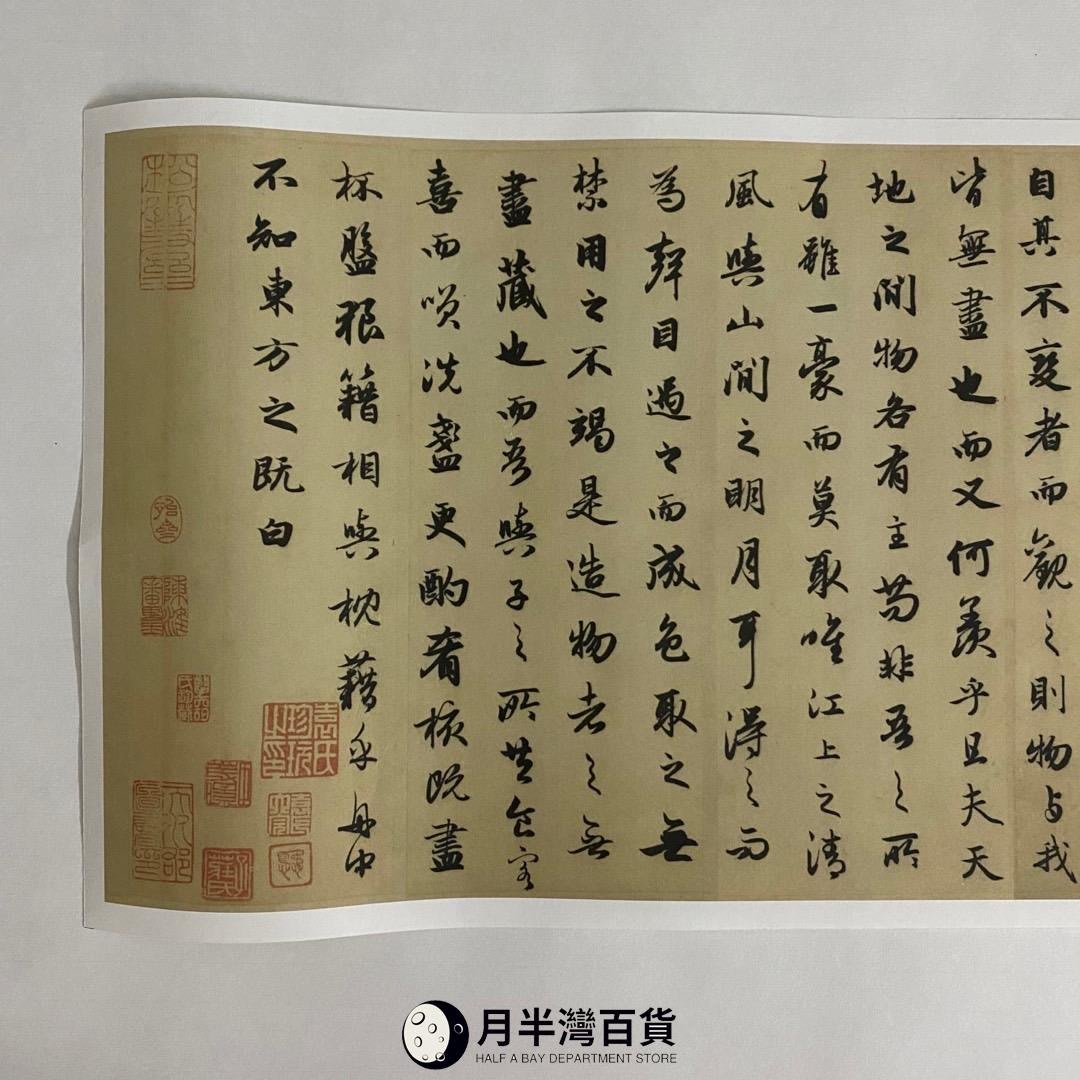 自其不變者而觀之則物与我
皆無盡也而又何羨乎且夫天
地之間物各有主茍非吾之所
有雖一豪而莫取唯江上之清
風與山間之明月耳得之而
為聲目過之而成色取之無
禁用之不竭是造物者之無
盡藏也而吾與子之所共食客
喜而笑洗盞更酌肴核既盡
杯盤狼籍相與枕藉乎舟中
不知東方之既白
月半灣百貨
HALF A BAY DEPARTMENT STORE